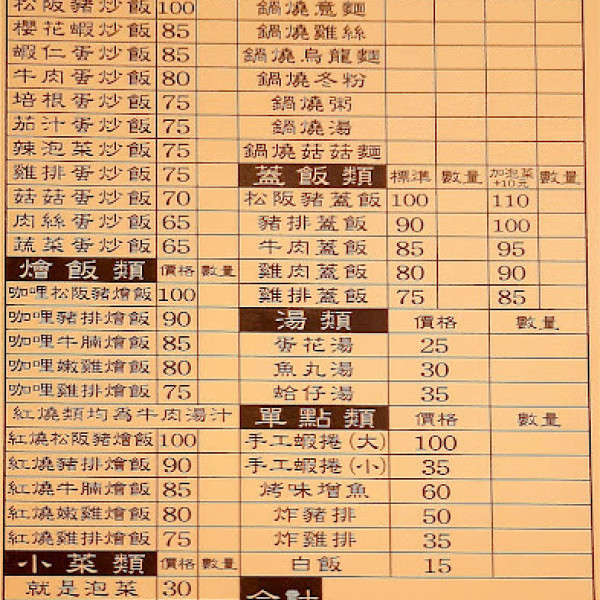 松阪豬炒飯 100
櫻花蝦炒飯 85
蝦仁蛋炒飯 85
牛肉蛋炒飯 80
培根蛋炒飯 75
茄汁蛋炒飯 75
辣泡菜炒飯 75
雞排蛋炒飯 75
菇菇蛋炒飯 70
肉絲蛋炒飯 65
蔬菜蛋炒飯 65
燴飯類 價格 數量
咖哩松阪豬燴飯 100
咖哩豬排燴飯 90
咖哩牛腩燴飯 85
咖哩嫩雞燴飯 80
咖哩雞排燴飯 75
紅燒類均為牛肉湯汁
紅燒松阪豬燴飯 100
紅燒豬排燴飯 90
紅燒牛腩燴飯 85
紅燒嫩雞燴飯 80
紅燒雞排燴飯 75
小菜類 價格 數量
就是泡菜 30
鍋燒意麵
鍋燒雞絲
鍋燒烏龍麵
鍋燒冬粉
鍋燒粥
鍋燒湯
鍋燒菇菇麵
蓋飯類 標準 數量 加泡菜+10元 數量
松阪豬蓋飯 100 110
豬排蓋飯 90 100
牛肉蓋飯 85 95
雞肉蓋飯 80 90
雞排蓋飯 75 85
湯類 價格 數量
蛋花湯 25
魚丸湯 30
蛤仔湯 35
單點類 價格 數量
手工蝦捲(大) 100
手工蝦捲(小) 35
烤味增魚 60
炸豬排 50
炸雞排 35
白飯 15
合計